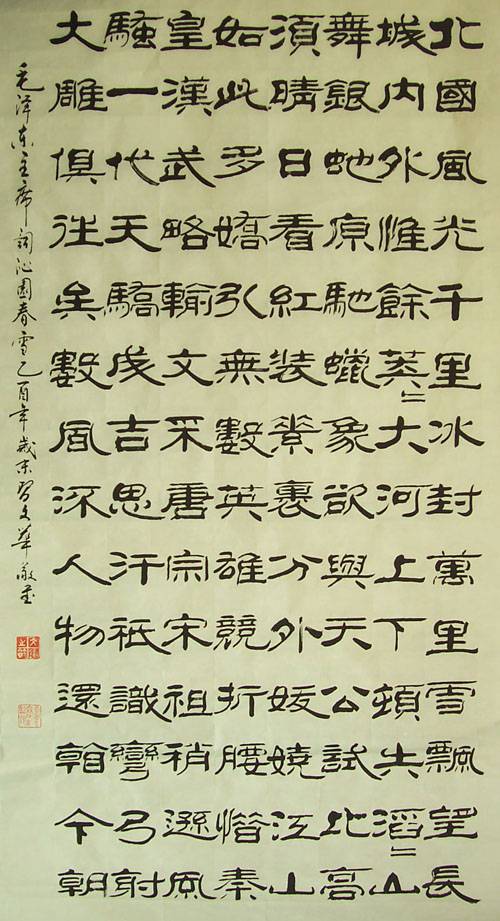 北國風光千里冰封萬里雪飄望長
城内外惟餘莽〻大河上下頓失滔〻山
舞銀蛇原馳蠟象欲與天公試比高
須晴日看紅裝素裹分外妖嬈江山
如此多嬌引無數英雄競折腰惜秦
皇漢武略輸文采唐宗宋祖稍遜風
騷一代天驕成吉思汗衹識彎弓射
大雕俱往矣數風流人物還看今朝
毛泽东主席詞沁園春雪乙酉年歲末習文華敬書